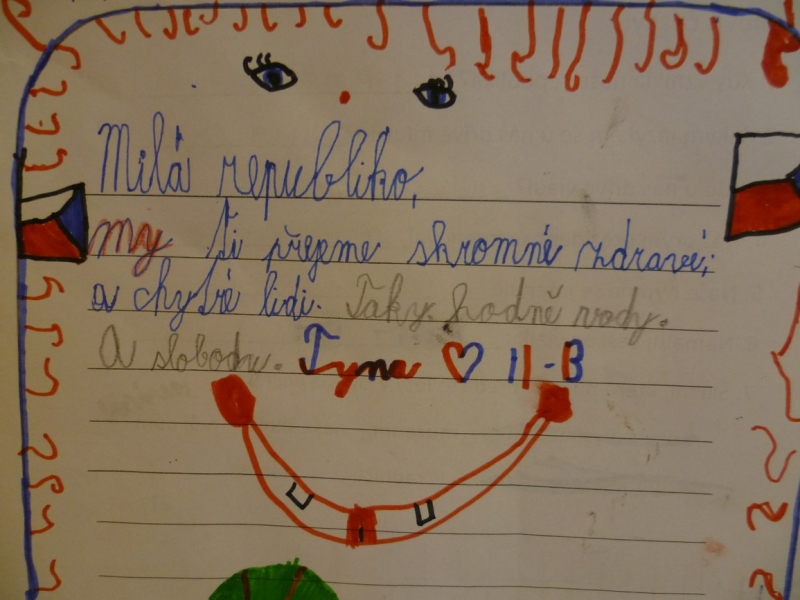 Milá republiko,
my Ti přejeme skromné zdravé,
a chytré lidi. Taky hodně vody.
A slobody. Tyna ♡ II-B